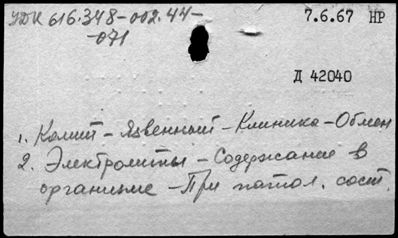 УДК 616.348-002.44-
-071
7.6.67 НР
Д 42040
1. Колит - Язвенный - Клиника - Обмен
2. Электролиты - Содержание в
организме - При патол. сост.